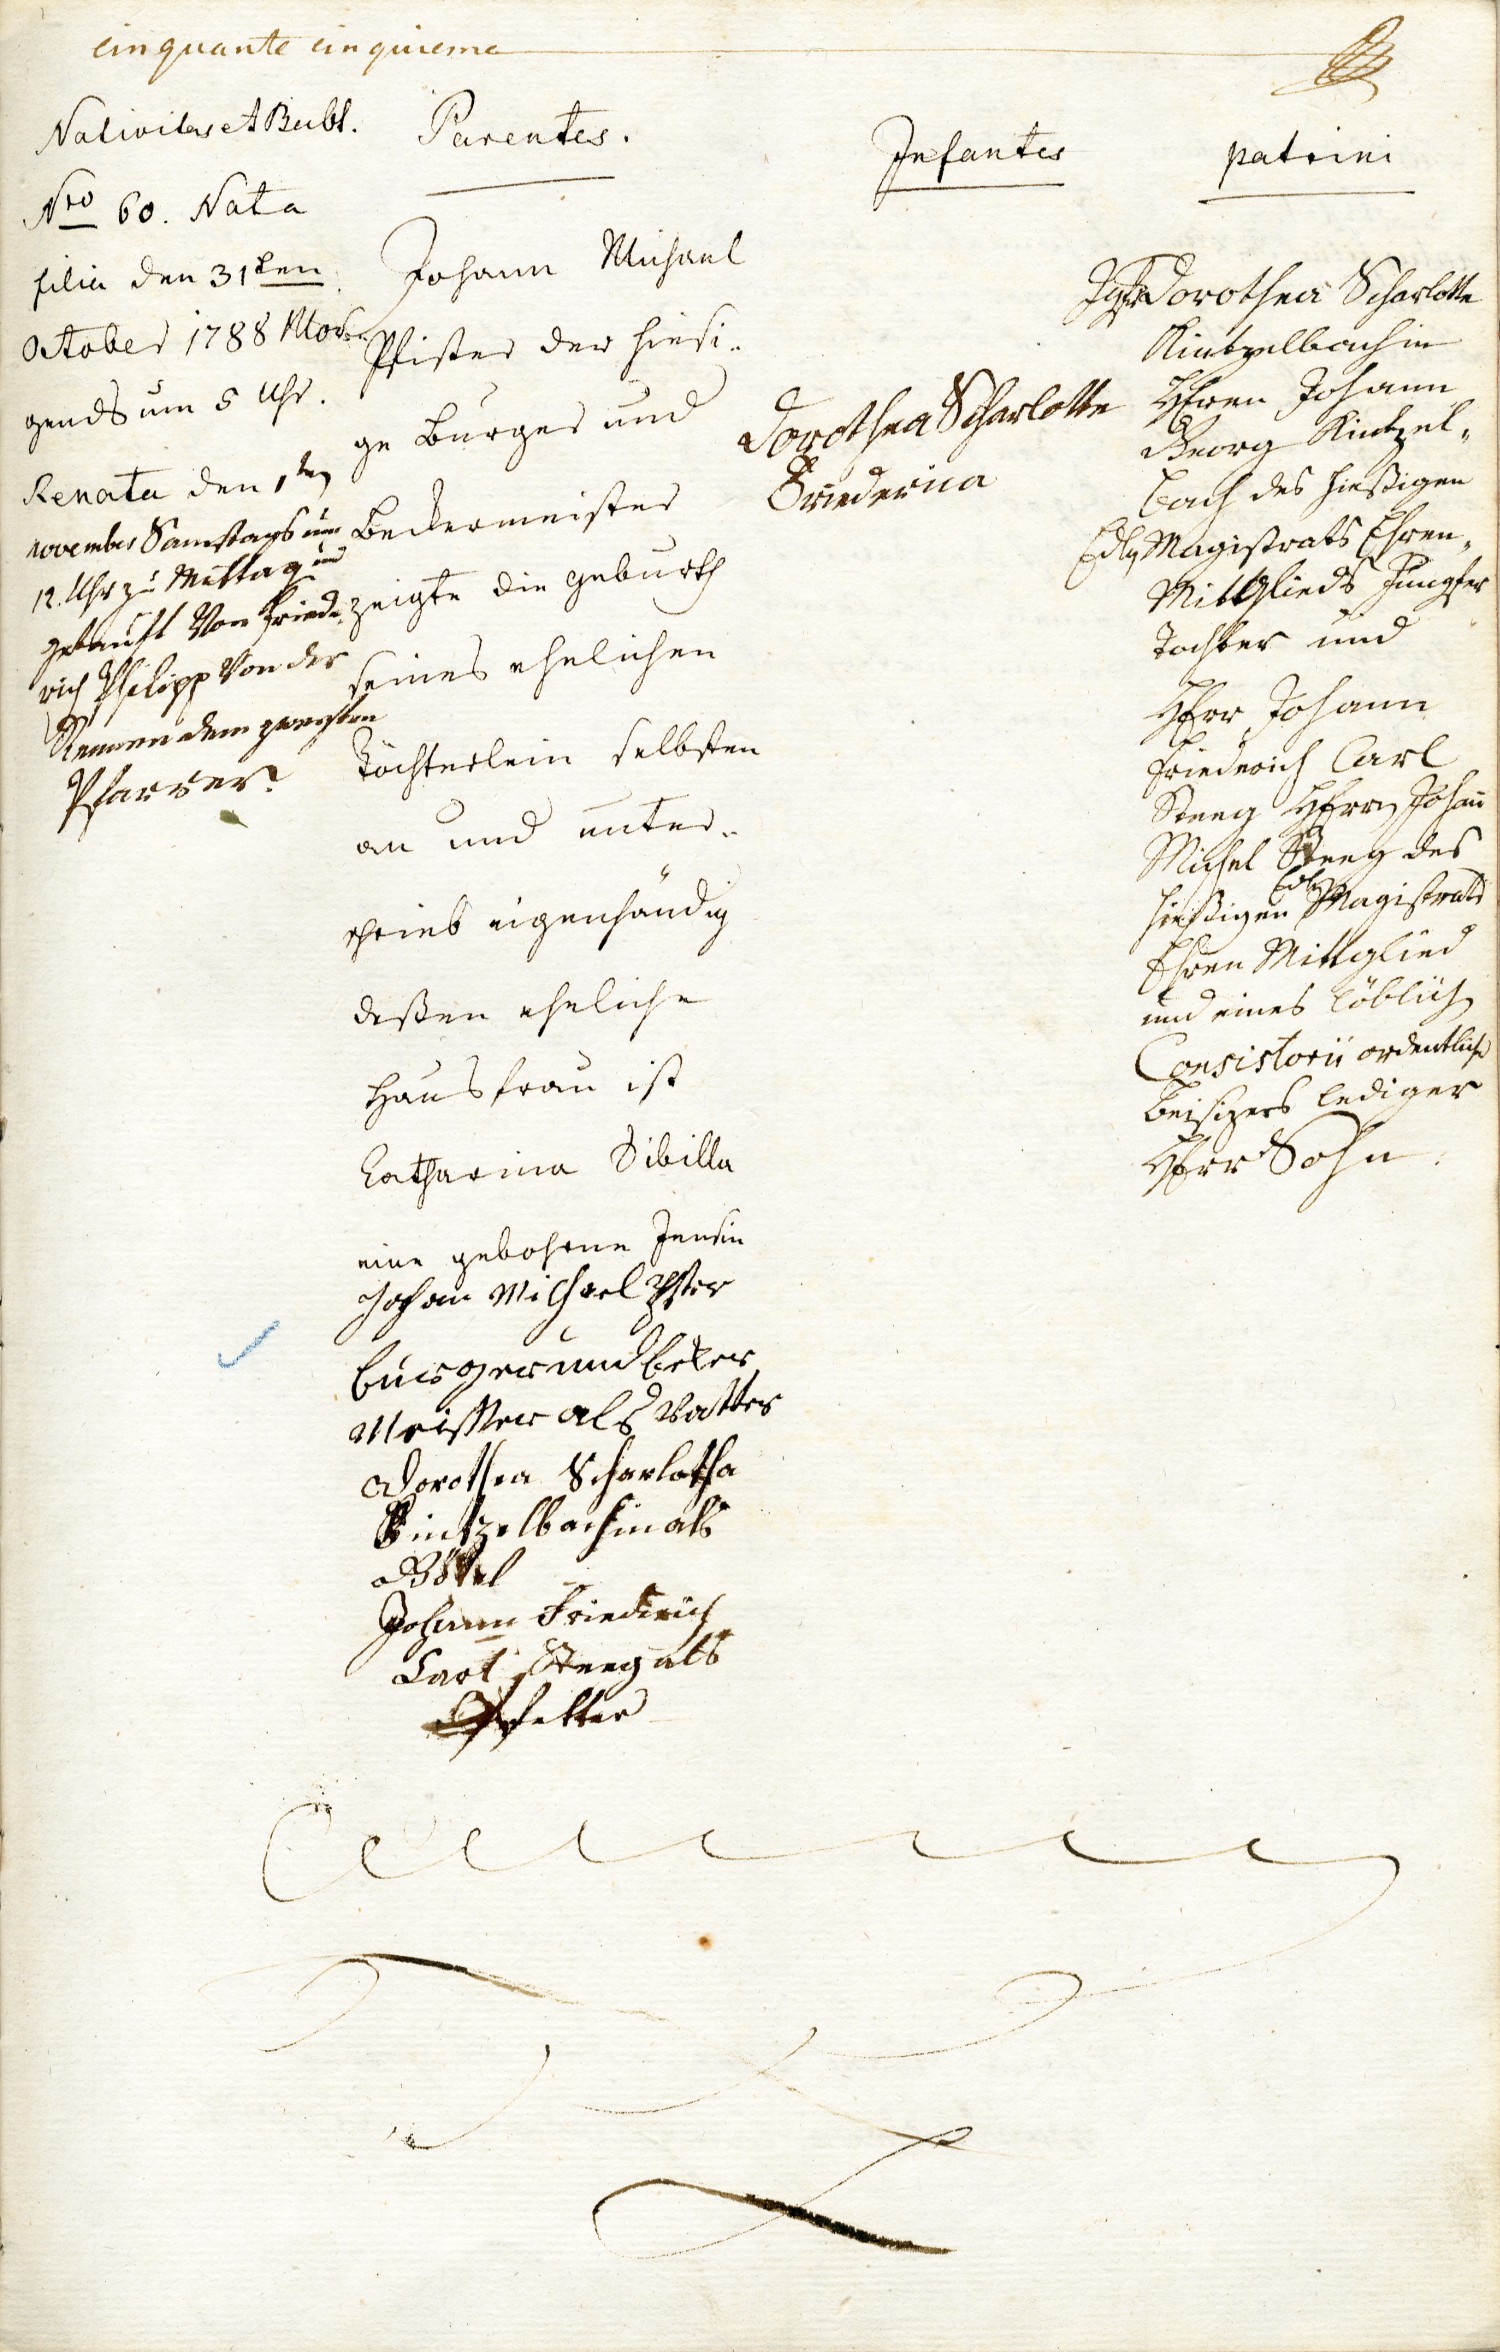 cinquante cinquieme
Nativitas et Bubt.
Nro 60. Nata
filia den 31ten
October 1788 Mor-
gends um 5 Uhr.
Renata den 1ten
november Samstags um
12. Uhr zu Mittag und
getauft Von Friede-
rich Philipp Von der
Rennen dem zweyten
Pfarrer.
Parentes.
Johann Michael
Pfister der hiesi-
ge Burger und
Beckermeister
zeigte die geburth
seines ehelichen
Töchterlein selbsten
an und unter-
schrieb eigenhändig
deßen eheliche
Hausfrau ist
Catharina Sibilla
eine gebohrne Jensin
Johann Michael Pfister
burger und beker
Meister als Vatter
Dorothea Scharlotha
Kintzelbachin als
Göttel
Johann Friedrich
Carl Steeg als
Pfetter
Infantes
Dorothea Scharlotte
Friederica
patrini
Jgfr Dorothea Scharlotte
Kintzelbachin
Herren Johann
Georg Kintzel-
bach des hießigen
Edlg Magistrats Ehren-
Mitglieds Jungfer
Tochter und
Herr Johann
Friederich Carl
Steeg Herrn Johann
Michel Steeg des
hießigen Edlg Magistrats
Ehren Mittglied
und eines löblich
Consistorii ordentliche
Beisizers lediger
Herr Sohn.